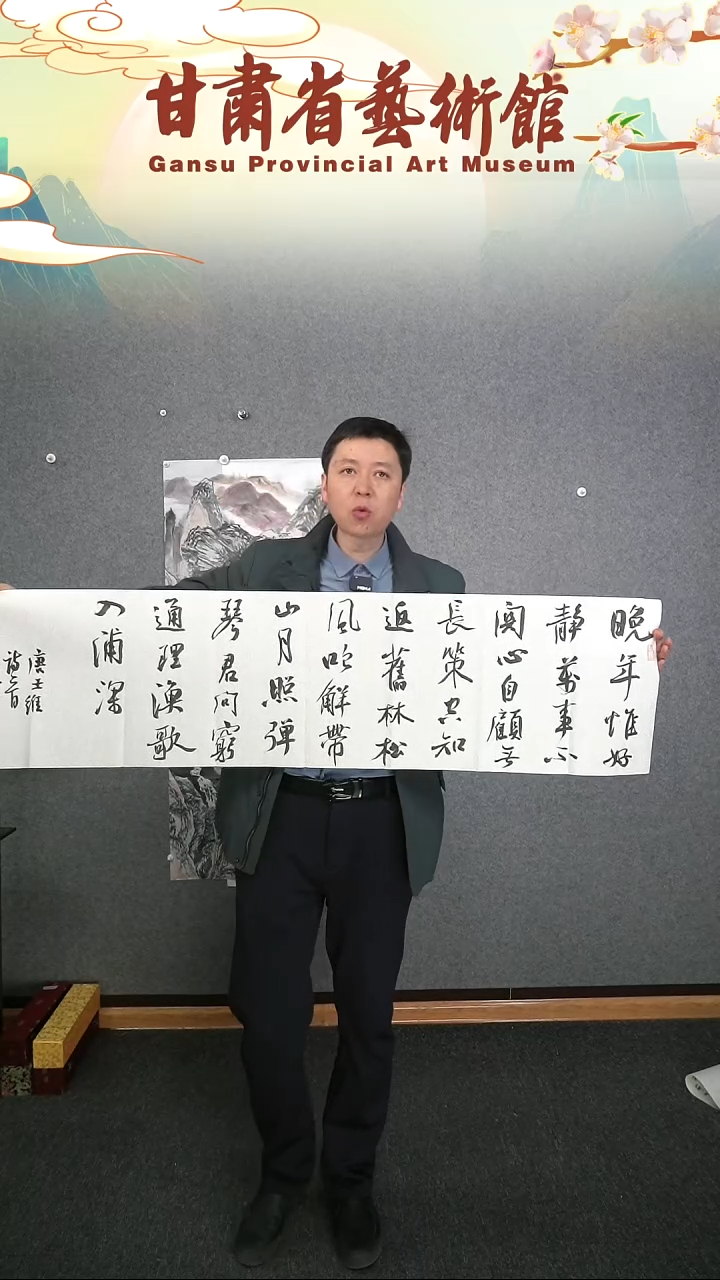 甘肅省藝術館
Gansu Provincial Art Museum
晚年惟好
静萬事不
関心自顧无
長策空知
返舊林松
風吹解帶
山月照彈
琴君問窮
通理漁歌
入浦深
唐王維
詩一首